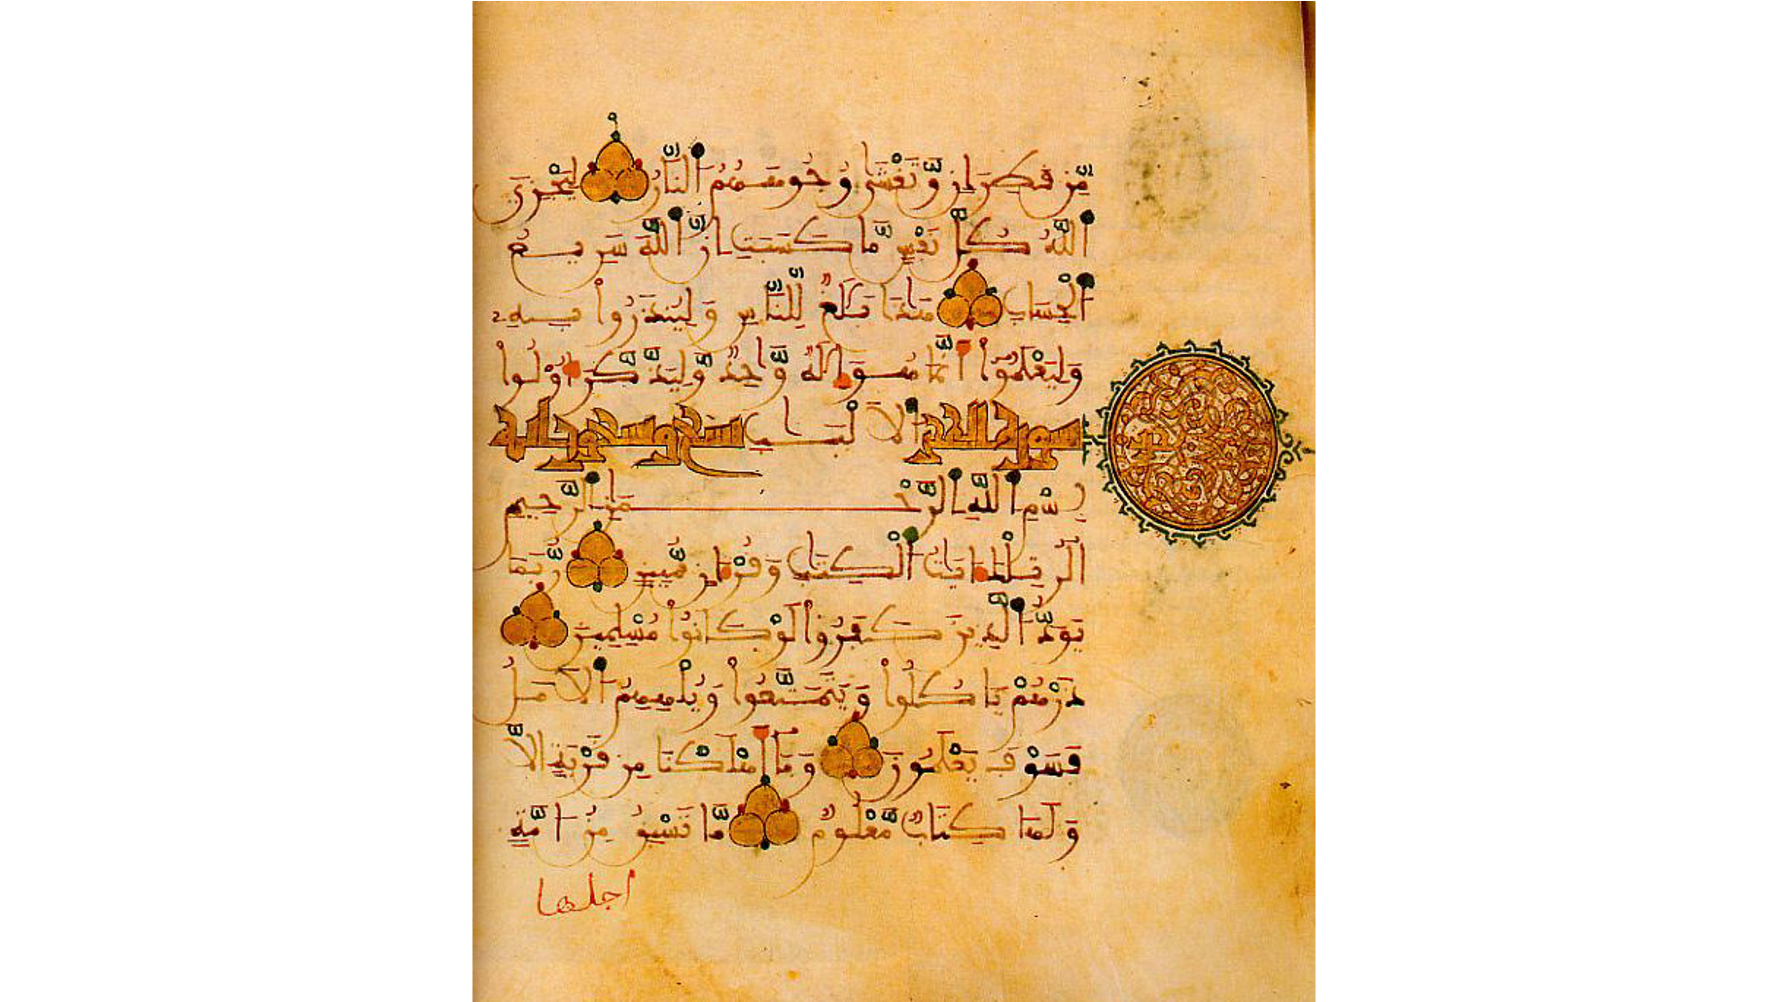 مِّن قَطِرَانٍ وَّتَغْشَىٰ وُجُوهَهُمُ ٱلنَّارُ لِيَجْزِيَ
ٱللَّهُ كُلَّ نَفْسٍ مَّا كَسَبَتِ اِنَّ ٱللَّهَ سَرِيعُ
ٱلْحِسَابِ هَٰذَا بَلَٰغٌ لِّلنَّاسِ وَلِيُنذَرُواْ بِهِۦ
وَلِيَعْلَمُوٓاْ أَنَّمَا هُوَ إِلَٰهٌ وَّٰحِدٌ وَّلِيَذَّكَّرَ أُوْلُواْ
سورة الحجر ٱلَالْبَٰبِ تسع وتسعون اية
بِسْمِ ٱللَّهِ ٱلرَّحْمَٰنِ ٱلرَّحِيمِ
الٓر تِلْكَ ءَايَٰتُ ٱلْكِتَٰبِ وَقُرْءَانٍ مُّبِينٍ رُّبَمَا
يَوَدُّ ٱلَّذِينَ كَفَرُواْ لَوْ كَانُواْ مُسْلِمِينَ
ذَرْهُمْ يَاكُلُواْ وَيَتَمَتَّعُواْ وَيُلْهِهِمُ ٱلَامَلُ
فَسَوْفَ يَعْلَمُونَ وَمَآ أَهْلَكْنَا مِن قَرْيَةٍ اِلَّا
وَلَهَا كِتَابٌ مَّعْلُومٌ مَّا تَسْبِقُ مِنُ امَّةٍ
اجلها